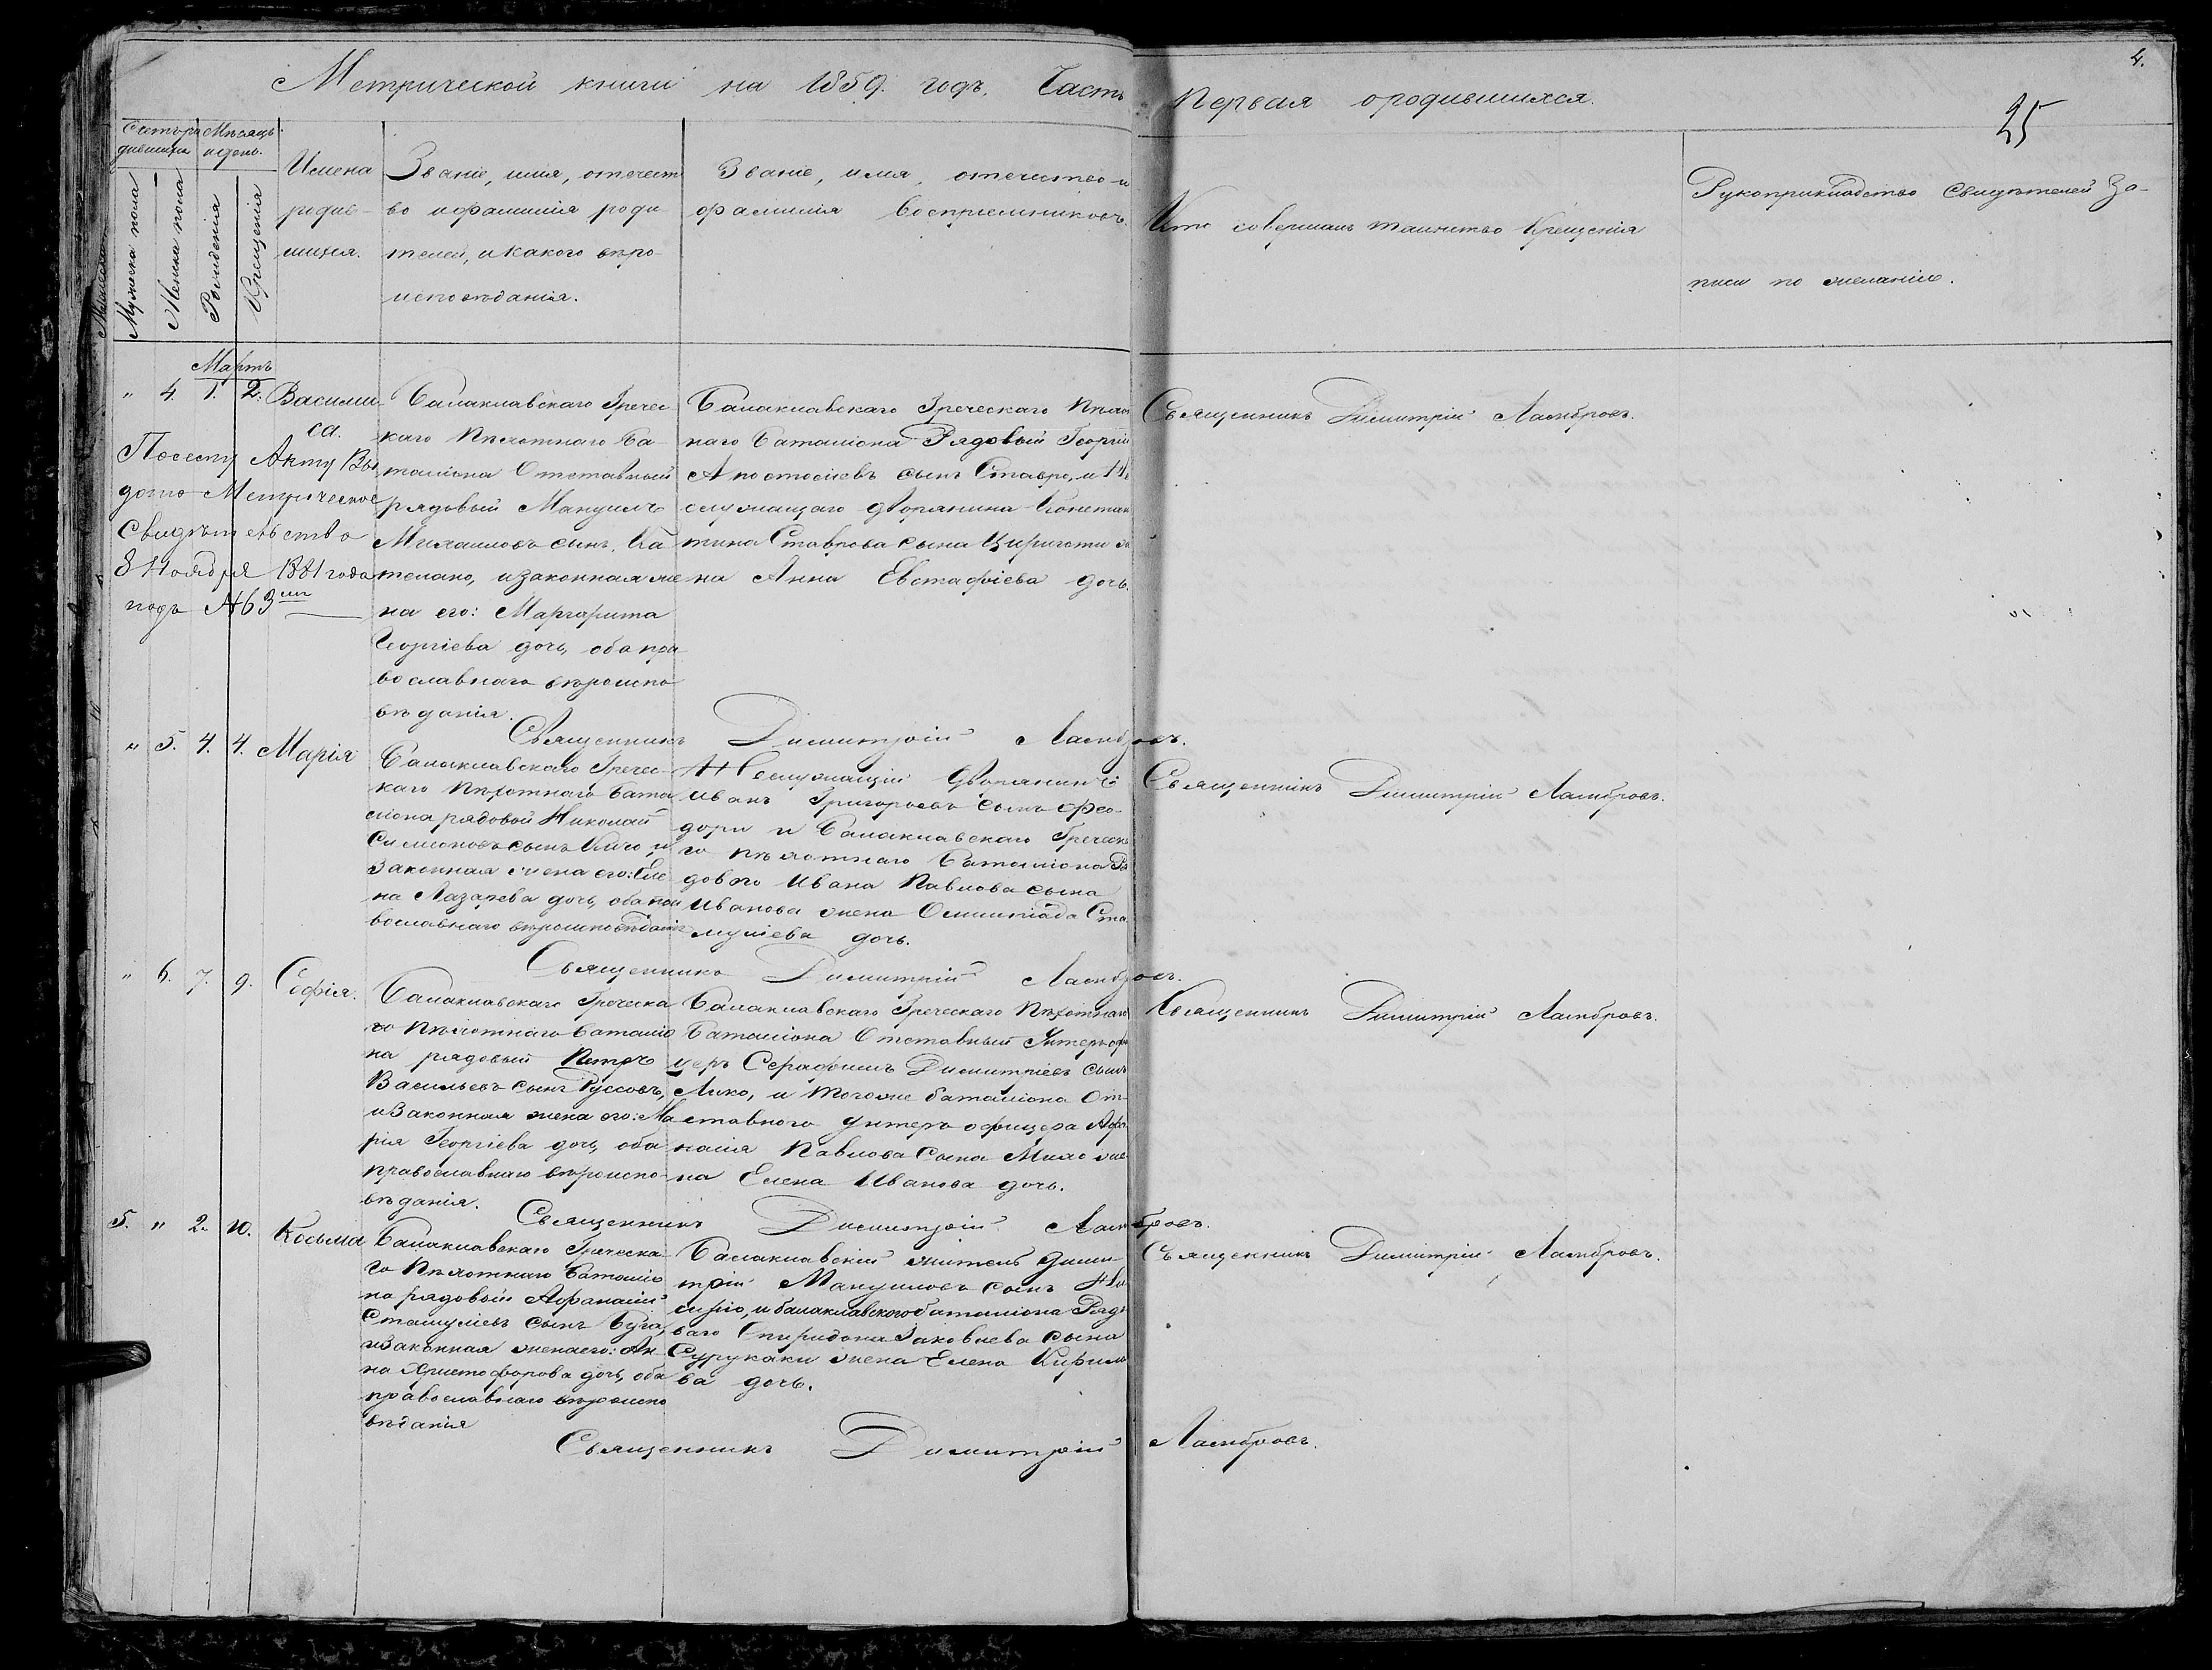 4.
25
Метрической книги на 1859. годъ. Часть Первая о родившихся.
Счетъ ро
дившихся
Мѣсяцъ
и день.
Мужеска пола
Женска пола
Рожденія
Крещенія
Имена
родив-
шихся.
Званіе, имя, отечест
во и фамилія роди-
телей, и какого вѣро-
исповѣданія.
Званіе, имя, отечество и
фамилія воспріемниковъ.
Кто совершалъ таинство крещенія
Рукоприкладство свидѣтелей за-
писи по желанію.
Мартъ
" 4. 1. 2. Васили
са.
По сему Акту Вы
дано Метрическое
Свидѣтельство
8 Ноября 1881 года
подъ №
Балаклавскаго Гречес
каго Пѣхотнаго Ба-
таліона Отставный
рядовый Мануилъ
Михаиловъ сынъ, Ка
телано, и законная же
на его: Маргарита
Георгіева дочь, оба пра
вославнаго вѣроиспо
вѣданія.
Балаклавскаго Греческаго Пѣхот
наго Баталіона Рядовый Георгій
Апостоліевъ сынъ Ставро, и Не
служащаго дворянина Констан
тина Ставрова сына Цириготи же
на Анна Евстафіева дочь.
Священникъ Димитрій Ламбровъ.
Священникъ Димитрій Ламбровъ.
" 5. 4. 4. Марія
Балаклавскаго Гречес-
каго Пѣхотнаго Бата
ліона рядовой Николай
Симеоновъ сынъ и
законная жена его: Еле
на Лазарева дочь, оба пра
вославнаго вѣроисповѣданія
Неслужащій Дворянинъ
Иванъ Григорьевъ сынъ Фео-
дори и Балаклавскаго Греческа
го пѣхотнаго Баталіона Ря
доваго Ивана Павлова сына
Иванова жена Олимпіада Ста
муліева дочь.
Священникъ Димитрій Ламбровъ.
Священникъ Димитрій Ламбровъ.
" 6. 7. 9. Софія.
Балаклавскаго Греческа
го Пѣхотнаго Баталіо
на рядовый Петръ
Васильевъ сынъ Руссовъ,
и законная жена его: Ма
рія Георгіева дочь, оба
православнаго вѣроиспо-
вѣданія.
Балаклавскаго Греческаго Пѣхотнаго
Баталіона Отставный Унтеръ офи
церъ Серафимъ Димитріевъ сынъ
Лико, и тогоже баталіона От-
ставного унтеръ офицера Афа
насія Павлова сына жe
на Елена Иванова дочь.
Священникъ Димитрій Ламбровъ.
Священникъ Димитрій Ламбровъ.
5. " 2. 10. Косьма
Балаклавскаго Греческа-
го Пѣхотнаго Баталіо
на рядовый Афанасій
Стамуліевъ сынъ Буга,
и законная жена его: Ан-
на Христофорова дочь, оба
православнаго вѣроиспо
вѣданія
Балаклавскій житель Дими-
трій Мануиловъ сынъ
и балаклавского баталіона Рядо
ваго Спиридона Яковлева сына
Сурукаки жена Елена Кирило
ва дочь.
Священникъ Димитрій Ламбровъ.
Священникъ Димитрій Ламбровъ.